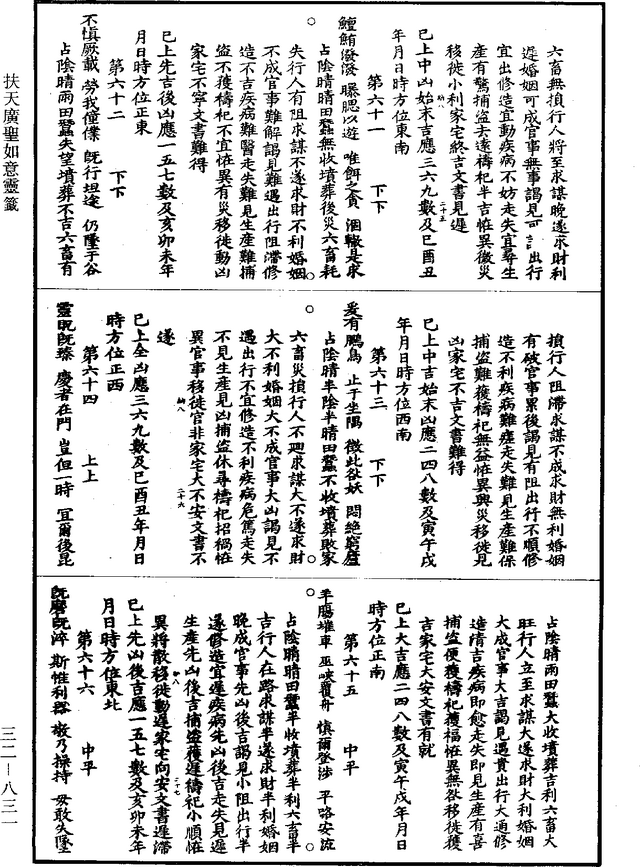 扶天廣聖如意靈籤
三二—八三一
六畜無損行人將至求謀晚遂求財利
遲婚姻可成官事無事謁見可 出行
宜出修造宜動疾病不妨走失宜尋生
產有驚捕盜去遠禱祀半吉恠異微災
移徙小利家宅終吉文書見遲
已上中凶始末吉應三六九數及巳酉丑
年月日時方位東南
第六十一 下下
鱣鮪潑潑 曝腮以遊 唯餌之貪 涸轍是求
占陰晴晴田蠶無收墳葬後災六畜耗
失行人有阻求謀不遂求財不利婚姻
不成官事難解謁見難遇出行阻滯修
造不吉疾病難醫走失難見生產難捕
盜不獲禱祀不宜恠異有災移徙動凶
家宅不寧文書難得
已上先吉後凶應一五七數及亥卯未年
月日時方位正東
第六十二 下下
不慎厥載 勞我僮僕 旣行坦途 仍墮于谷
占陰晴雨田蠶失望墳葬不吉六畜有
損行人阻滯求謀不成求財無利婚姻
有破官事累後謁見有阻出行不順修
造不利疾病難痊走失難見生產難保
捕盜難獲禱祀無益恠異興災移徙見
凶家宅不吉文書難得
已上中吉始末凶應二四八數及寅午戌
年月日時方位西南
第六十三 下下
爰有鵬鳥 止于坐隅 徵此谷妖 悶絶窮廬
占陰晴半陰半晴田蠶不收墳葬敗家
六畜災損行人不廻求謀大不遂求財
大不利婚姻大不成官事大凶謁見不
遇出行不宜修造不利疾病危篤走失
不見生產見凶捕盜休尋禱祀招禍恠
異官事移徙官非家宅大不安文書不
遂
已上全凶應三六九數及巳酉丑年月日
時方位正西
第六十四 上上
靈貺旣臻 慶者在門 豈但一時 冝爾後昆
占陰晴雨田蠶大收墳葬吉利六畜大
旺行人立至求謀大遂求財大利婚姻
大成官事大吉謁見遇貴出行大通修
造清吉疾病即愈走失即見生產有喜
捕盜便獲禱祀獲福恠異無咎移徙獲
吉家宅大安文書有就
已上大吉應二四八數及寅午戌年月日
時方位正南
第六十五 中平
羊腸堆車 巫峽覆舟 慎爾登涉 平路安流
占陰晴晴田蠶半收墳葬半利六畜半
吉行人在路求謀半遂求財半利婚姻
晚成官事先凶後吉謁見小阻出行半
遂修造宜遲疾病先凶後吉走失見遲
生產先凶後吉捕盜獲遲禱祀小順恠
異將散移徙動遲家宅向安文書遲滯
已上先凶後吉應一五七數及亥卯未年
月日時方位東北
第六十六 中平
旣磨旣淬 斯惟利器 敬乃操持 毋敢失墜